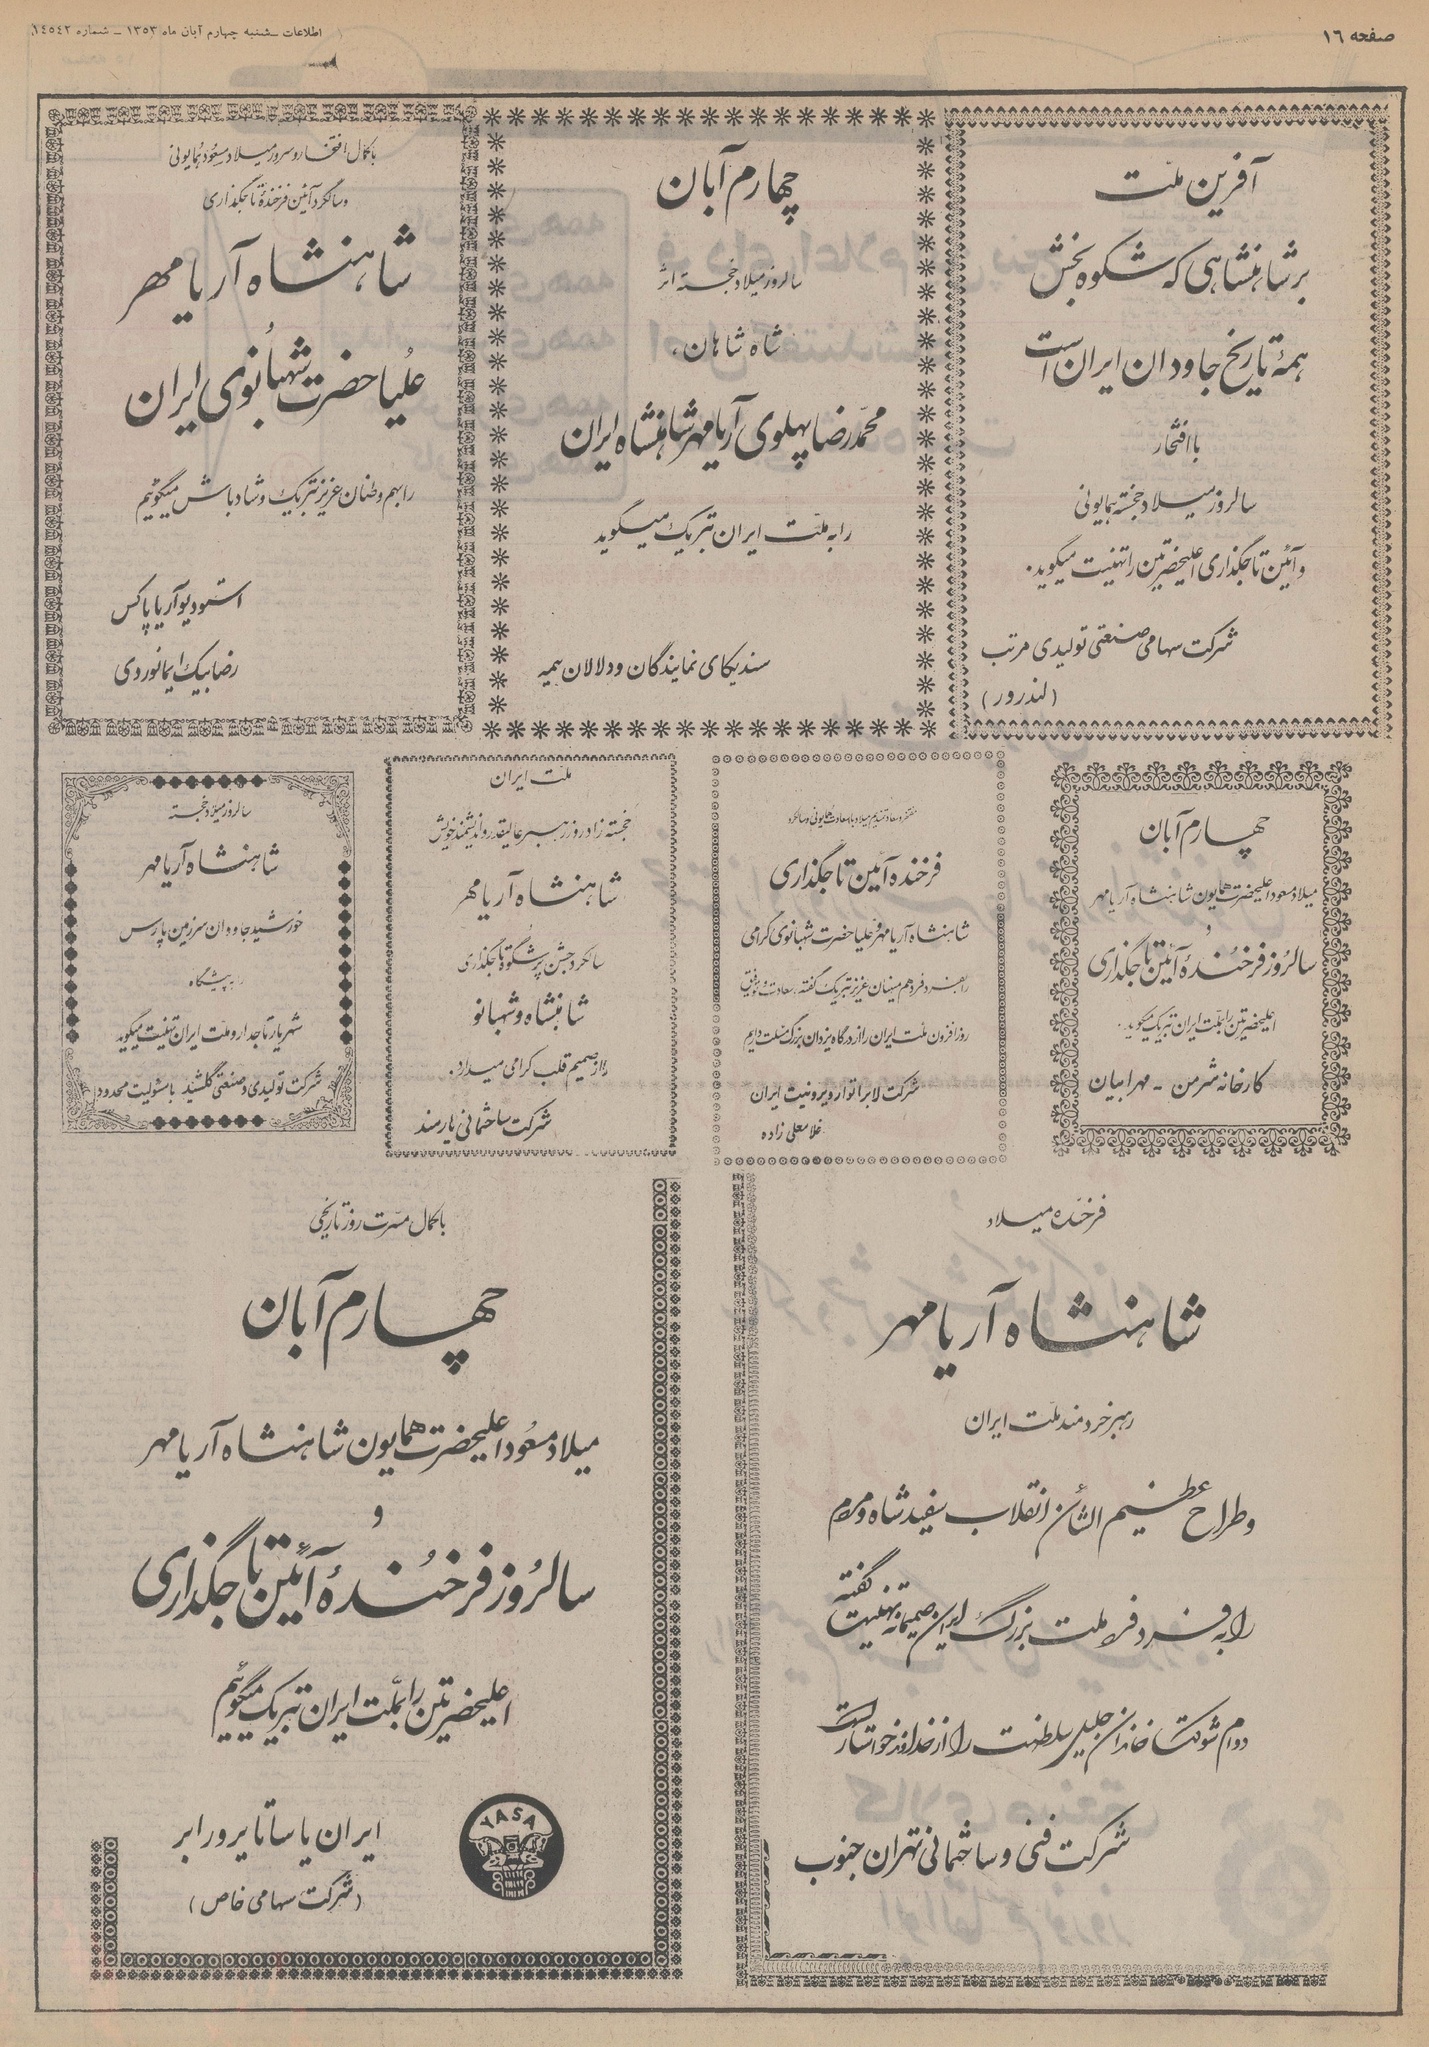 صفحه ۱۶
اطلاعات ـ شنبه چهارم آبان ماه ۱۳۵۳ ـ شماره ۱۴۵۴۲
آفرین ملت
بر شاهنشاهی که شکوه بخش
همهٔ تاریخ جاودان ایران است
با افتخار
سالروز میلاد خجسته همایونی
و آئین تاجگذاری اعلیحضرتین را تهنیت میگوید.
شرکت سهامی صنعتی تولیدی مرتب
(لندرور)
چهارم آبان
سالروز میلاد خجسته اثر
شاه شاهان،
محمدرضا پهلوی آریامهر شاهنشاه ایران
را به ملت ایران تبریک میگوید
سندیکای نمایندگان و دلالان بیمه
با کمال افتخار و سرور میلاد مسعود همایونی
و سالگرد آئین فرخندهٔ تاجگذاری
شاهنشاه آریامهر
علیاحضرت شهبانوی ایران
را بهم وطنان عزیز تبریک و شادباش میگوئیم
استودیو آریا پاکس
رضا بیک ایمانوردی
چهارم آبان
میلاد مسعود اعلیحضرت همایون شاهنشاه آریامهر
و
سالروز فرخندهٔ آئین تاجگذاری
اعلیحضرتین را بملت ایران تبریک میگوید.
کارخانه شرمن - مهرابیان
فرخنده آئین تاجگذاری
شاهنشاه آریامهر و علیاحضرت شهبانوی گرامی
را بفرد فرد هم میهنان عزیز تبریک گفته سعادت و توفیق
روزافزون ملت ایران را از درگاه یزدان بزرگ مسئلت داریم
شرکت لابراتوار ویرونیت ایران
غلامعلی زاده
ملت ایران
خجسته زادروز رهبر عالیقدر و اندیشمند خویش
شاهنشاه آریامهر
و
سالگرد جشن پرشکوه تاجگذاری
شاهنشاه و شهبانو
را از صمیم قلب گرامی میدارد.
شرکت ساختمانی یارمند
سالروز میلاد خجسته
شاهنشاه آریامهر
خورشید جاودان سرزمین پارس
را به پیشگاه
شهریار تاجدار و ملت ایران تهنیت میگوید
شرکت تولیدی و صنعتی گلشید با مسئولیت محدود
فرخنده میلاد
شاهنشاه آریامهر
رهبر خردمند ملت ایران
و طراح عظیم الشأن انقلاب سفید شاه و مردم
را به فرد فرد ملت بزرگ ایران صمیمانه تهنیت گفته
دوام شوکت خاندان جلیل سلطنت را از خداوند خواستار است
شرکت فنی و ساختمانی تهران جنوب
با کمال مسرت روز تاریخی
چهارم آبان
میلاد مسعود اعلیحضرت همایون شاهنشاه آریامهر
و
سالروز فرخندهٔ آئین تاجگذاری
اعلیحضرتین را بملت ایران تبریک میگوئیم
YASA
ایران یاسا تایر و رابر
(شرکت سهامی خاص)